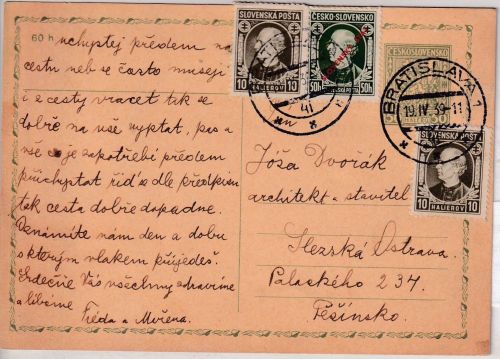 60 h
nchystej předem na
cestu neb se často musejí
i z cesty vracet tak se
dobře na vše vyptat, pas a
vše co je zapotřebí předem
přichystat řiď se dle předpisů
tak cesta dobře dopadne.
Oznámíte nám den a dobu
s kterým vlakem přijedeš.
Srdečně Vás všechny zdravíme
a líbáme
Fréda a Mořena.
SLOVENSKÁ POŠTA
10 HALIEROV 10
ČESKO-SLOVENSKO
50h 50h
ČESKOSLOVENSKO
50
BRATISLAVA 1
19. IV. 39-11
41
SLOVENSKÁ POŠTA
10 HALIEROV 10
Jóža Dvorák
architekt a stavitel
Slezská Ostrava.
Palackého 234.
Těšínsko.